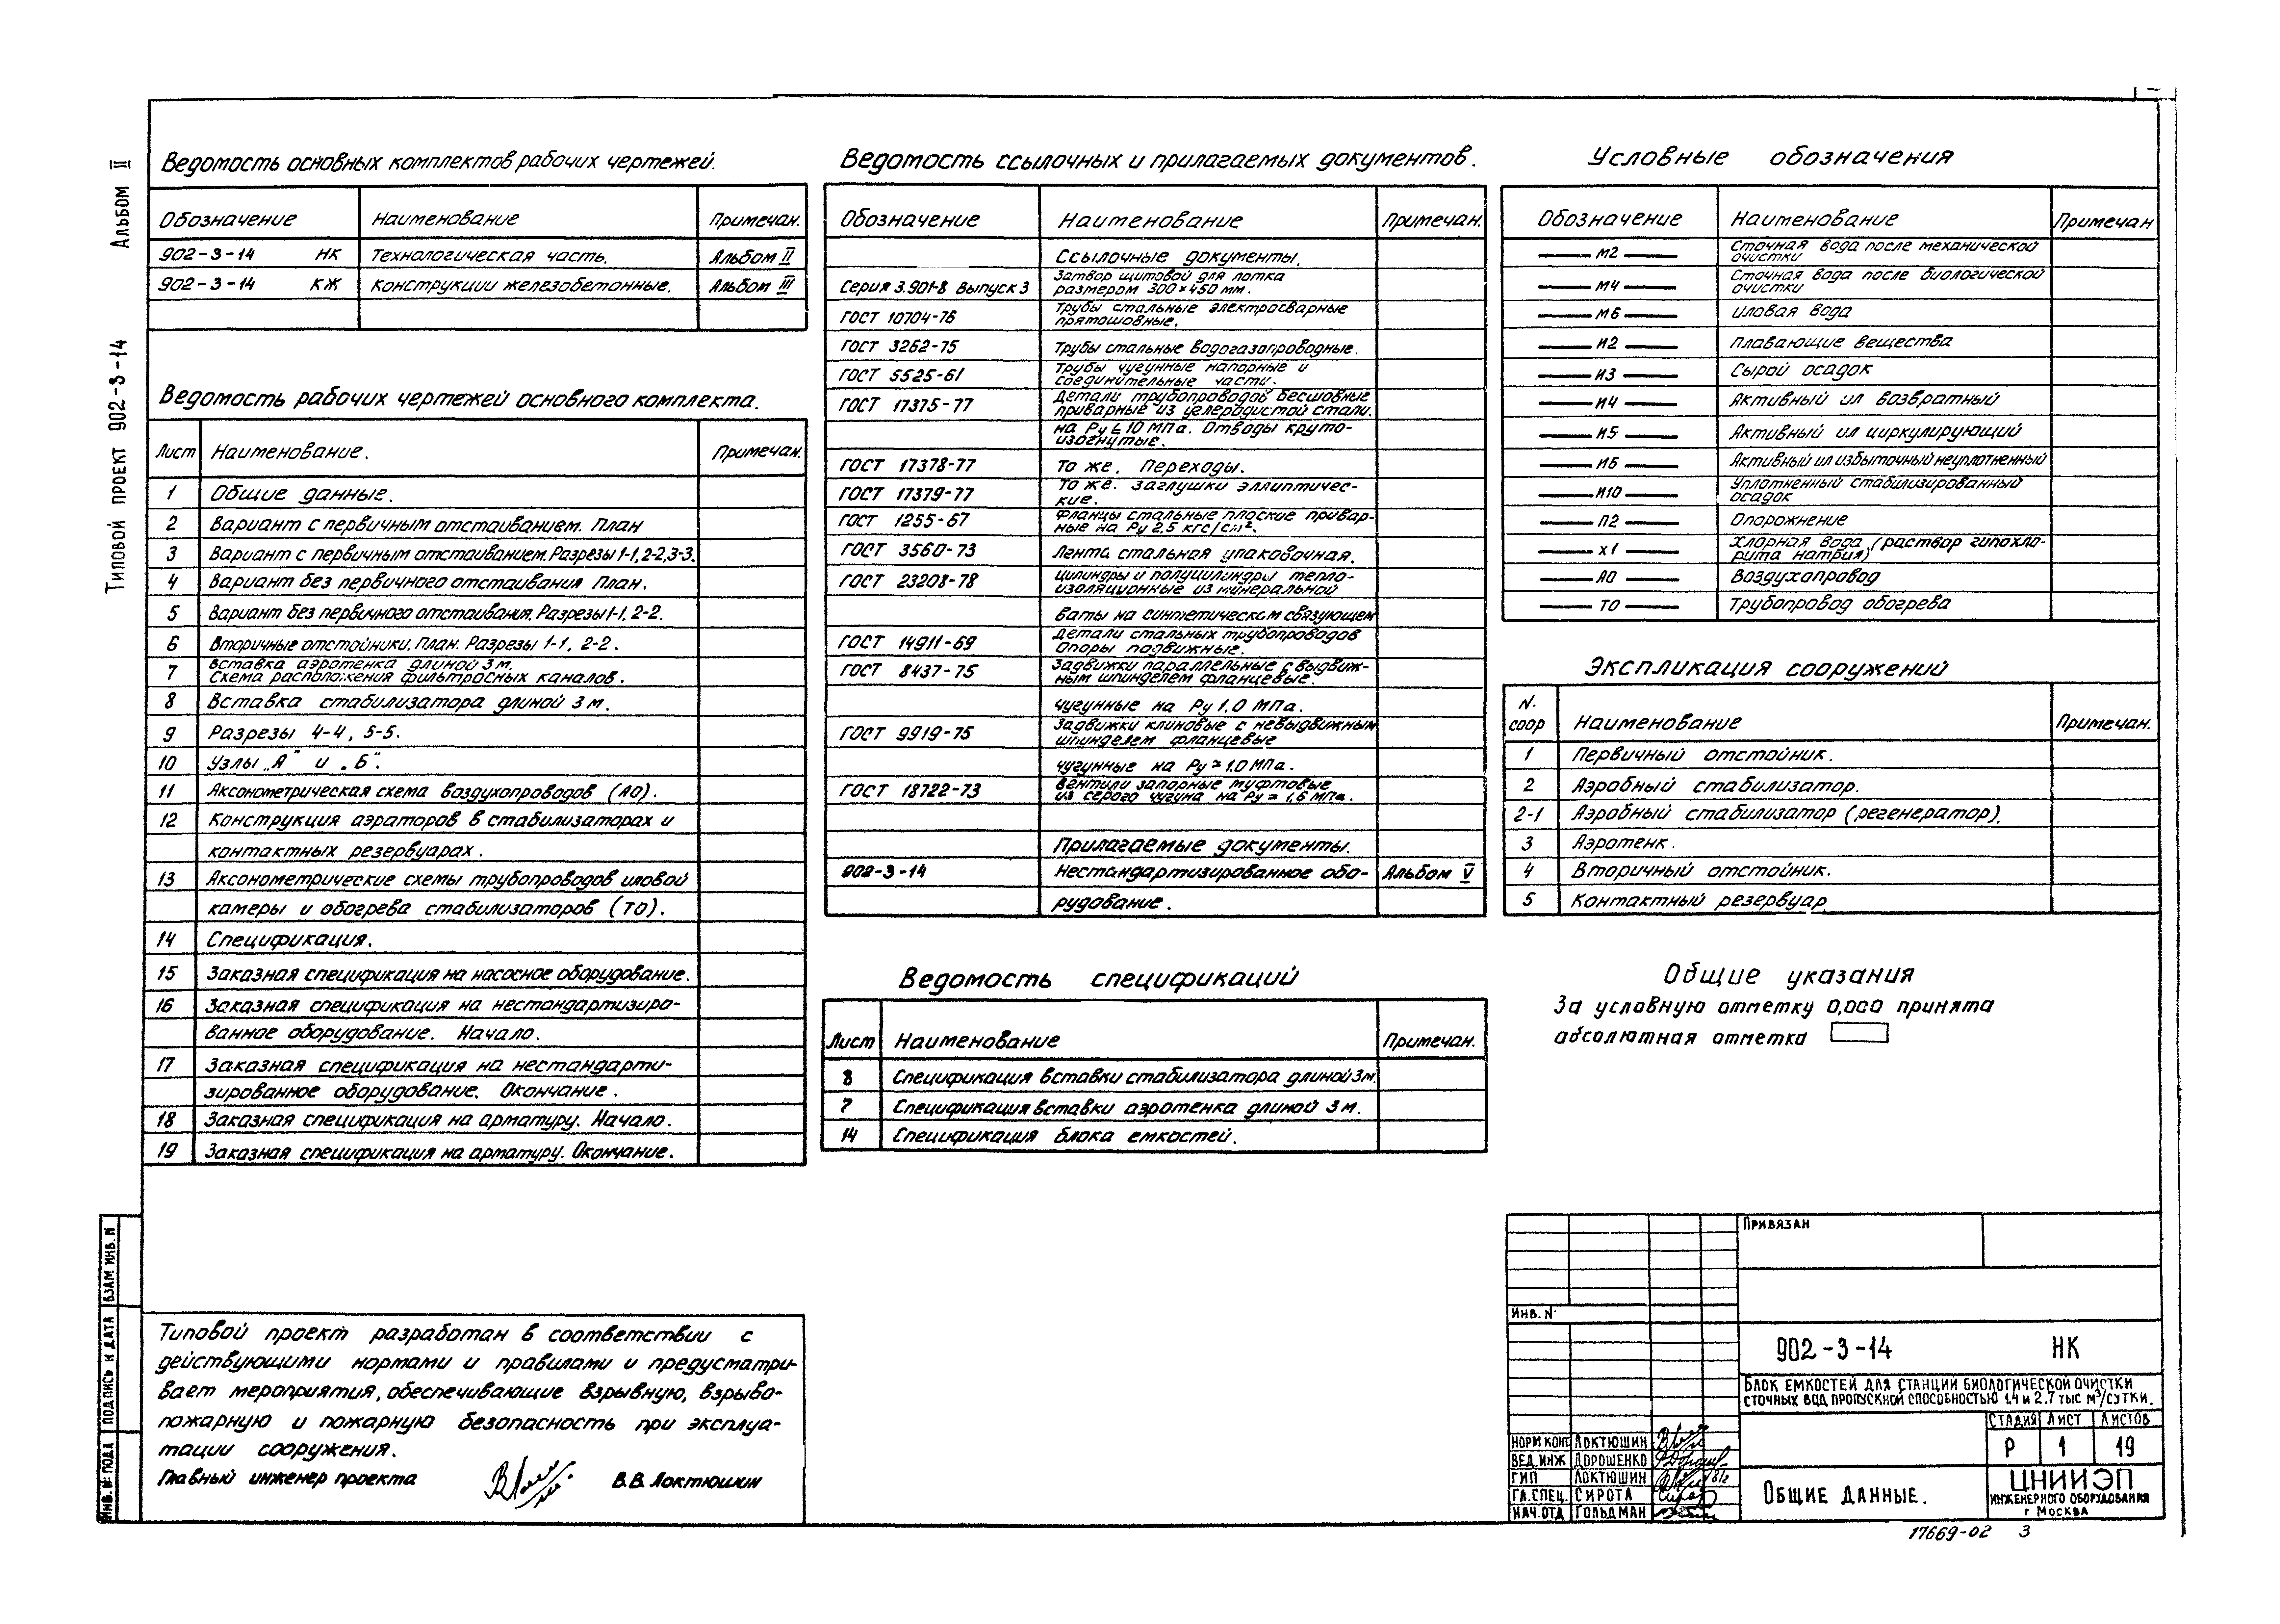 Типовой проект 902-3-14 Альбом II
Ведомость основных комплектов рабочих чертежей.
Обозначение Наименование Примечан.
902-3-14 НК Технологическая часть. Альбом II
902-3-14 КЖ Конструкции железобетонные. Альбом III
Ведомость рабочих чертежей основного комплекта.
Лист Наименование. Примечан.
1 Общие данные.
2 Вариант с первичным отстаиванием. План
3 Вариант с первичным отстаиванием. Разрезы 1-1, 2-2, 3-3.
4 Вариант без первичного отстаивания План.
5 Вариант без первичного отстаивания. Разрезы 1-1, 2-2.
6 Вторичные отстойники. План. Разрезы 1-1, 2-2.
7 Вставка аэротенка длиной 3 м.
Схема расположения фильтросных каналов.
8 Вставка стабилизатора длиной 3 м.
9 Разрезы 4-4, 5-5.
10 Узлы „А" и „Б".
11 Аксонометрическая схема воздухопроводов (А0).
12 Конструкция аэраторов в стабилизаторах и
контактных резервуарах.
13 Аксонометрические схемы трубопроводов иловой
камеры и обогрева стабилизаторов (Т0).
14 Спецификация.
15 Заказная спецификация на насосное оборудование.
16 Заказная спецификация на нестандартизиро-
ванное оборудование. Начало.
17 Заказная спецификация на нестандарти-
зированное оборудование. Окончание.
18 Заказная спецификация на арматуру. Начало.
19 Заказная спецификация на арматуру. Окончание.
Типовой проект разработан в соответствии с
действующими нормами и правилами и предусматри-
вает мероприятия, обеспечивающие взрывную, взрыво-
пожарную и пожарную безопасность при эксплуа-
тации сооружения.
Главный инженер проекта В.В. Локтюшин
Ведомость ссылочных и прилагаемых документов.
Обозначение Наименование Примечан.
Ссылочные документы.
Серия 3.901-8 Выпуск 3 Затвор щитовой для лотка
размером 300×450 мм.
ГОСТ 10704-76 Трубы стальные электросварные
прямошовные.
ГОСТ 3262-75 Трубы стальные водогазопроводные.
ГОСТ 5525-61 Трубы чугунные напорные и
соединительные части.
ГОСТ 17375-77 Детали трубопроводов бесшовные
приварные из углеродистой стали.
на Ру ≤ 10 МПа. Отводы круто-
изогнутые.
ГОСТ 17378-77 То же. Переходы.
ГОСТ 17379-77 То же. Заглушки эллиптичес-
кие.
ГОСТ 1255-67 Фланцы стальные плоские привар-
ные на Ру 2,5 кгс/см².
ГОСТ 3560-73 Лента стальная упаковочная.
ГОСТ 23208-78 Цилиндры и полуцилиндры тепло-
изоляционные из минеральной
ваты на синтетическом связующем
ГОСТ 14911-69 Детали стальных трубопроводов
Опоры подвижные.
ГОСТ 8437-75 Задвижки параллельные с выдвиж-
ным шпинделем фланцевые.
чугунные на Ру 1,0 МПа.
ГОСТ 9919-75 Задвижки клиновые с невыдвижным
шпинделем фланцевые
чугунные на Ру = 1.0 МПа.
ГОСТ 18722-73 Вентили запорные муфтовые
из серого чугуна на Ру = 1,6 МПа.
Прилагаемые документы.
902-3-14 Нестандартизированное обо- Альбом V
рудование.
Ведомость спецификаций
Лист Наименование Примечан.
8 Спецификация вставки стабилизатора длиной 3м.
7 Спецификация вставки аэротенка длиной 3 м.
14 Спецификация блока емкостей.
Условные обозначения
Обозначение Наименование Примечан
М2 Сточная вода после механической
очистки
М4 Сточная вода после биологической
очистки
М6 Иловая вода
И2 Плавающие вещества
И3 Сырой осадок
И4 Активный ил возвратный
И5 Активный ил циркулирующий
И6 Активный ил избыточный неуплотненный
И10 Уплотненный стабилизированный
осадок
П2 Опорожнение
Х1 Хлорная вода (раствор гипохло-
рита натрия)
А0 Воздухопровод
Т0 Трубопровод обогрева
Экспликация сооружений
N. соор Наименование Примечан.
1 Первичный отстойник.
2 Аэробный стабилизатор.
2-1 Аэробный стабилизатор (регенератор).
3 Аэротенк.
4 Вторичный отстойник.
5 Контактный резервуар
Общие указания
За условную отметку 0,000 принята
абсолютная отметка
Привязан
Инв. N
902-3-14 НК
Блок емкостей для станций биологической очистки
сточных вод пропускной способностью 1.4 и 2.7 тыс м³/сутки.
Стадия Лист Листов
Р 1 19
Норм конт Локтюшин
Вед. инж Дорошенко
ГИП Локтюшин
Гл. спец. Сирота
Нач. отд Гольдман
Общие данные.
ЦНИИЭП
инженерного оборудования
г Москва
17669-02 3
Инв. N подл Подпись и дата Взам. инв. N